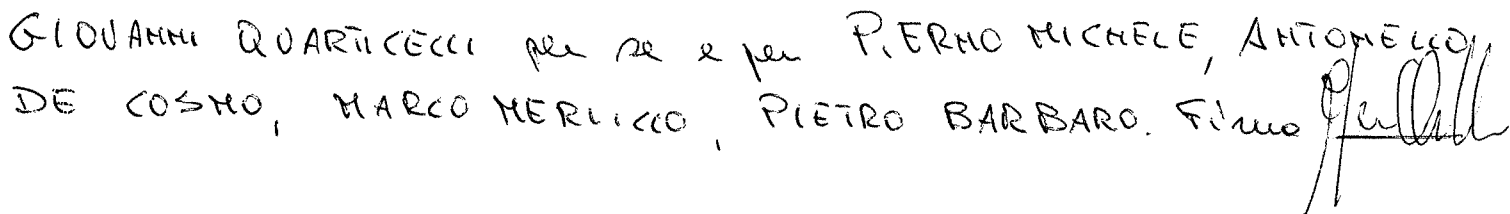 GIOVANNI QUARTICELLI per se e per PIERNO MICHELE, ANTONELLO
DE COSMO, MARCO MERLICCO, PIETRO BARBARO. Firma